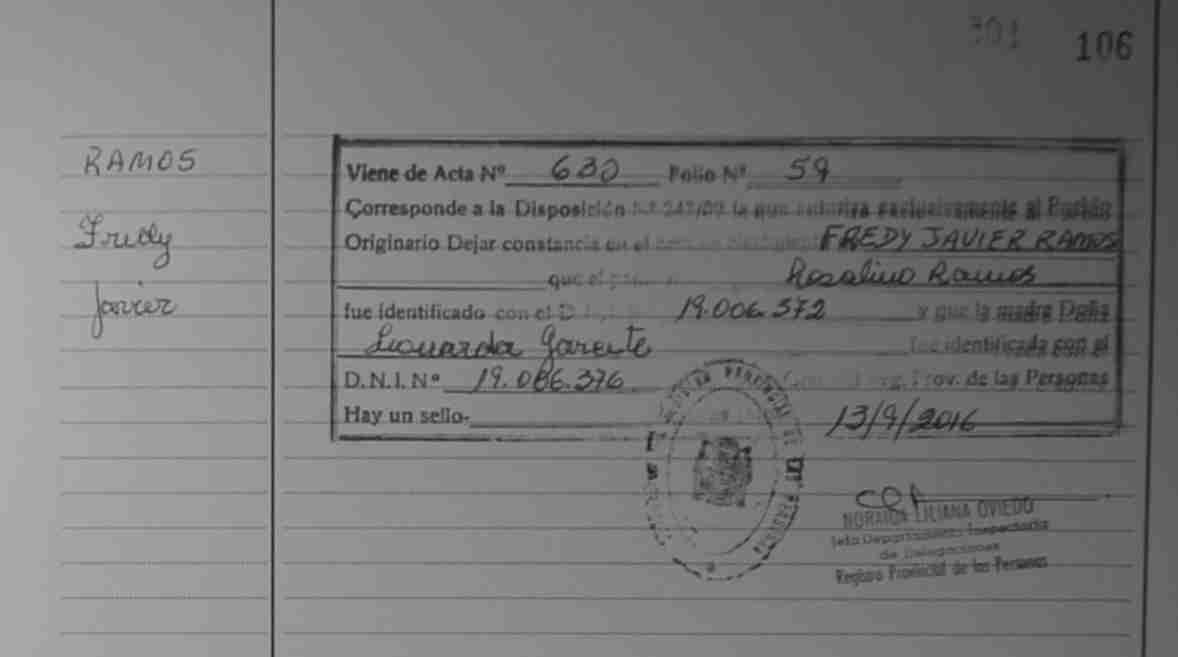 106
RAMOS
Fredy
Javier
Viene de Acta Nº 630 Folio Nº 59
Corresponde a la Disposición Nº 247/09 la que autoriza exclusivamente al Pueblo
Originario Dejar constancia en el FREDY JAVIER RAMOS
que el Rosalino Ramos
fue identificado con el D 19.006.372 y que la madre Doña
Garente fue identificada con el
D.N.I. Nº 19.086.376 Prov. de las Personas
Hay un sello- 13/9/2016
LILIANA OVIEDO
Jefa Departamento Inspectoría
de Delegaciones
Registro Provincial de las Personas